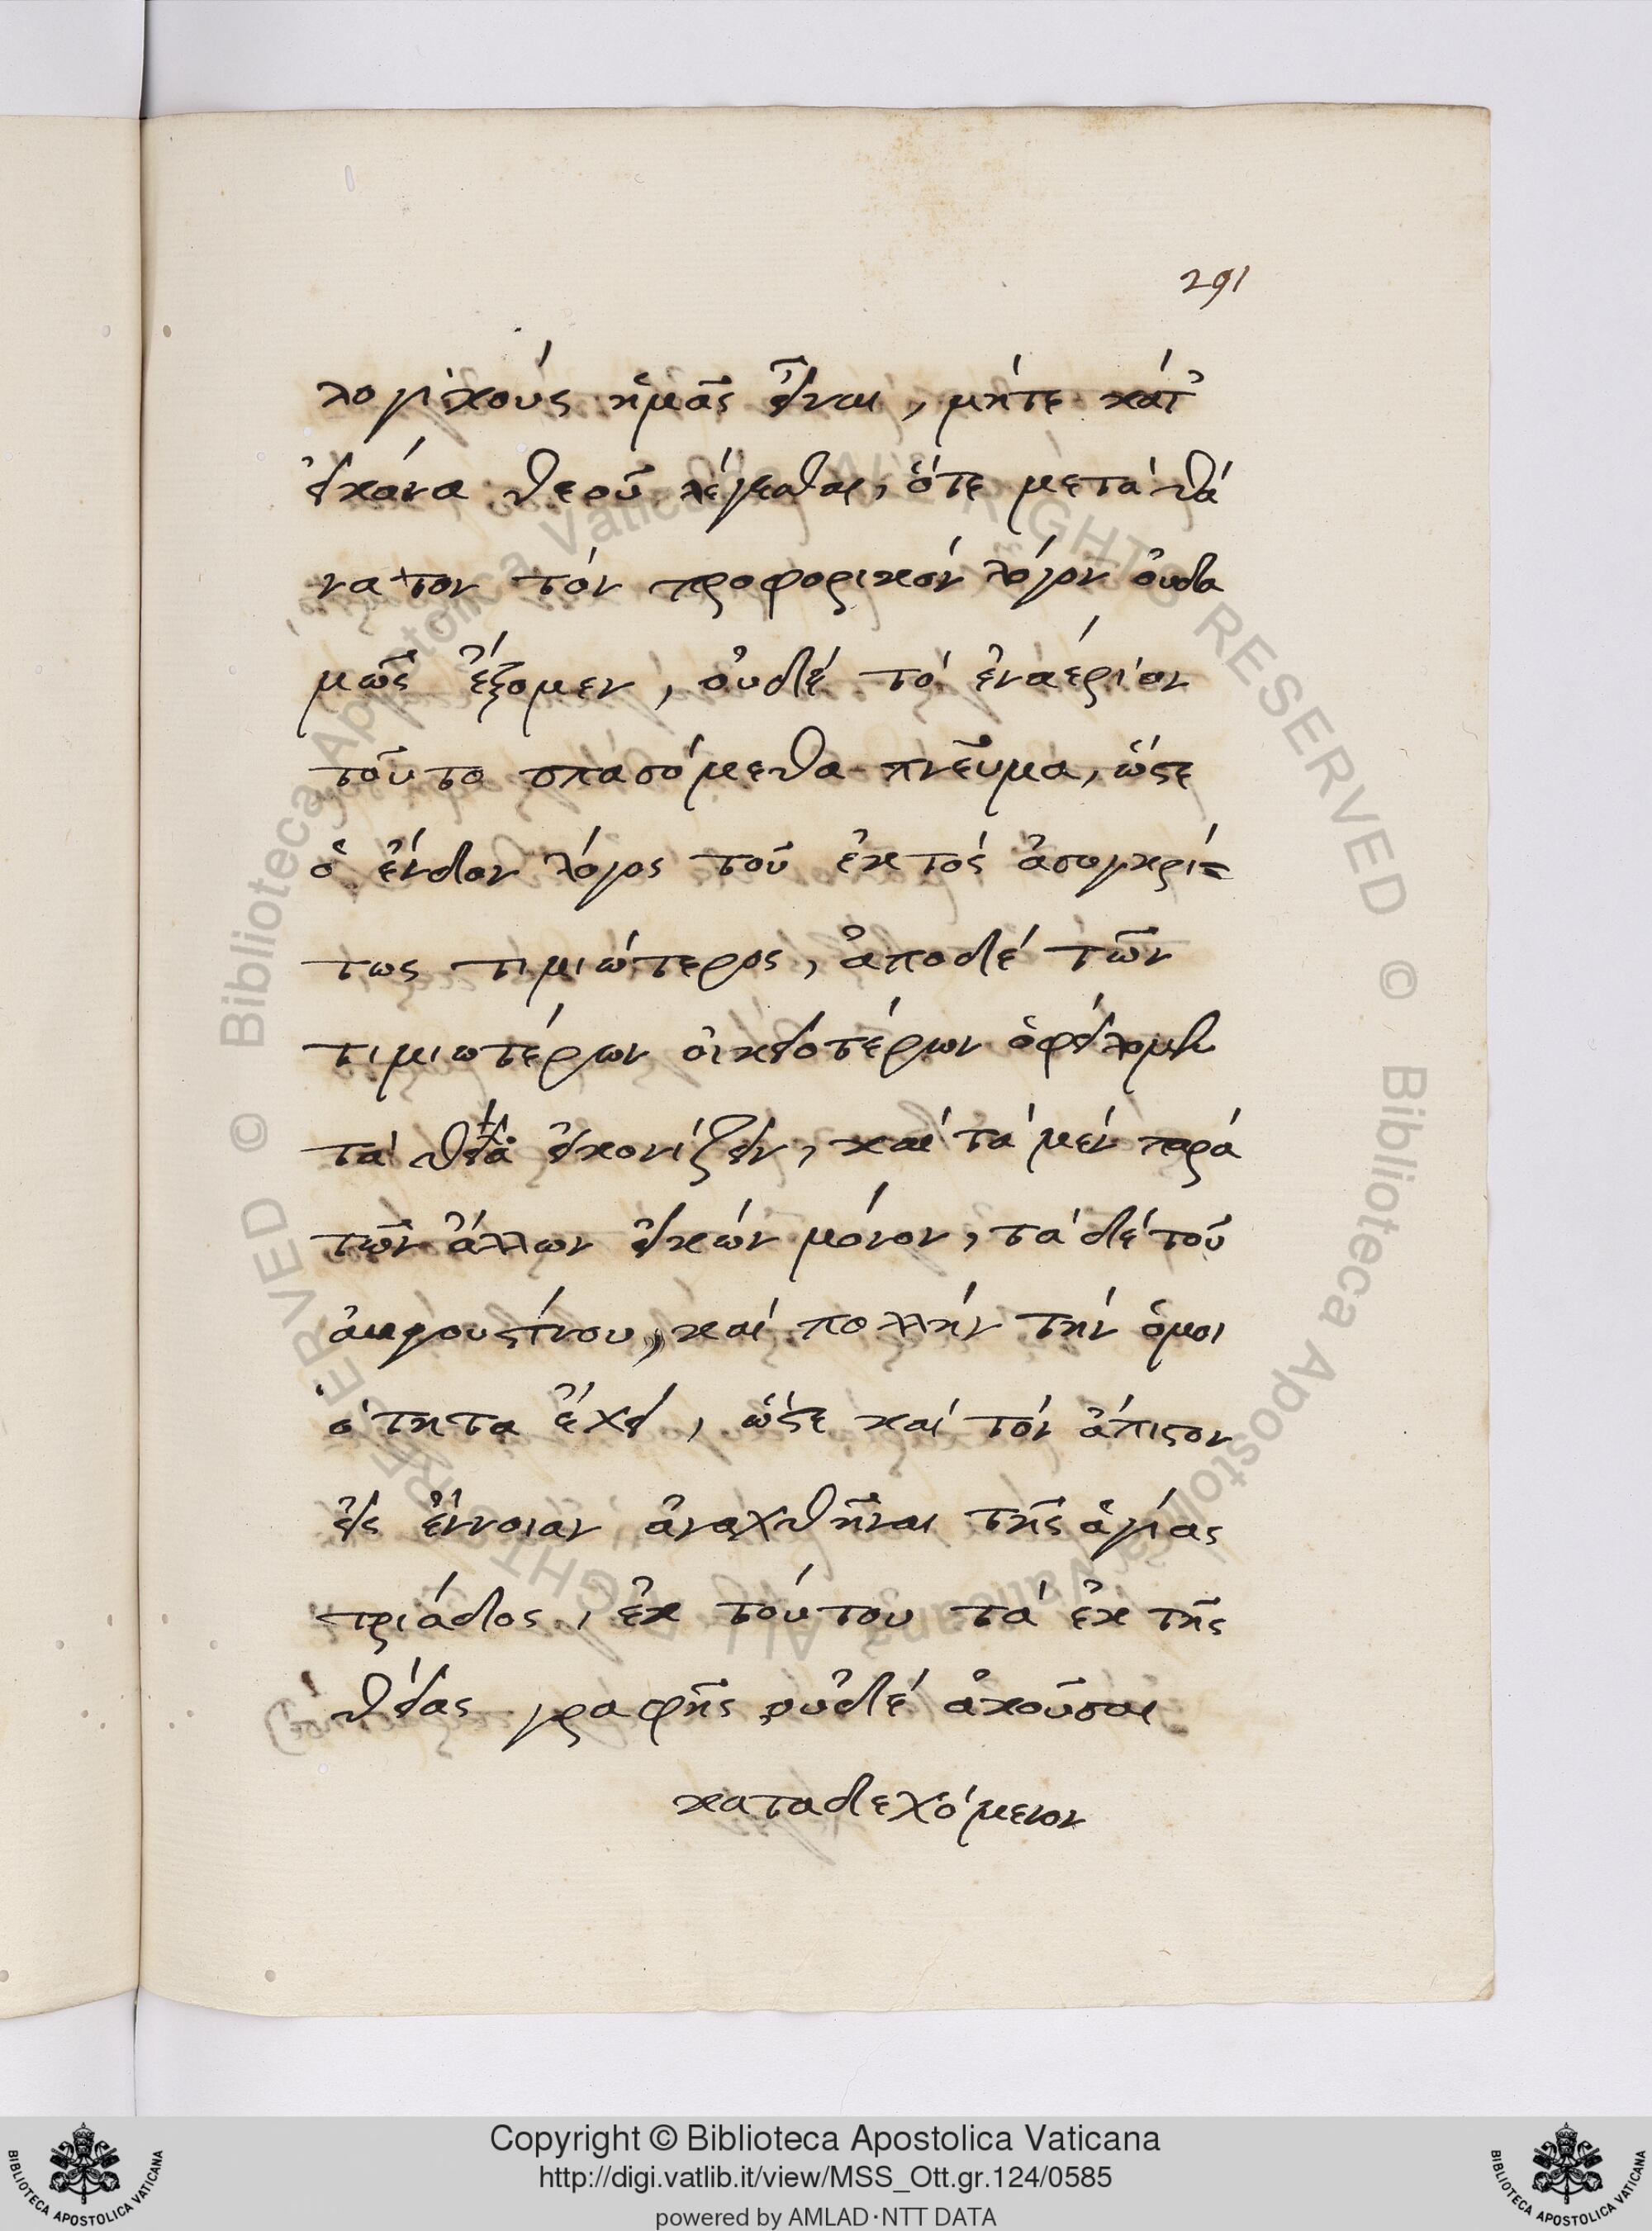 291
λογικοὺς ἡμᾶς εἶναι, μήτε κατ᾽
εἰκόνα θεοῦ λέγεσθαι, ὅτε μετὰ θά
νατον τὸν προφορικὸν λόγον οὐδα
μῶς ἕξομεν, οὐδὲ τὸ ἐναέριον
τοῦτο σπασόμεθα πνεῦμα, ὥστε
ὁ ἔνδον λόγος τοῦ ἐκτὸς ἀσυγκρί=
τως τιμιώτερος, ἀπὸ δὲ τῶν
τιμιωτέρων οἰκειοτέρων ὀφείλομεν
τὰ θεῖα εἰκονίζειν, καὶ τὰ μὲν παρὰ
τῶν ἄλλων εἰκὼν μόνον, τὰ δὲ τοῦ
αὐγουστίνου, καὶ πολλὴν τὴν ὁμοι
ότητα ἔχει, ὥστε καὶ τὸν ἄπιστον
εἰς ἔννοιαν ἀναχθῆναι τῆς ἁγίας
τριάδος, ἐκ τούτου τὰ ἐκ τῆς
θείας γραφῆς οὐδὲ ἀκοῦσαι
καταδεχόμενον
© Biblioteca Apostolica Vaticana ALL RIGHTS RESERVED © Biblioteca Apostolica Vaticana ALL RIGHTS RESERVED
Copyright © Biblioteca Apostolica Vaticana
http://digi.vatlib.it/view/MSS_Ott.gr.124/0585
powered by AMLAD·NTT DATA
BIBLIOTECA APOSTOLICA VATICANA
BIBLIOTECA APOSTOLICA VATICANA